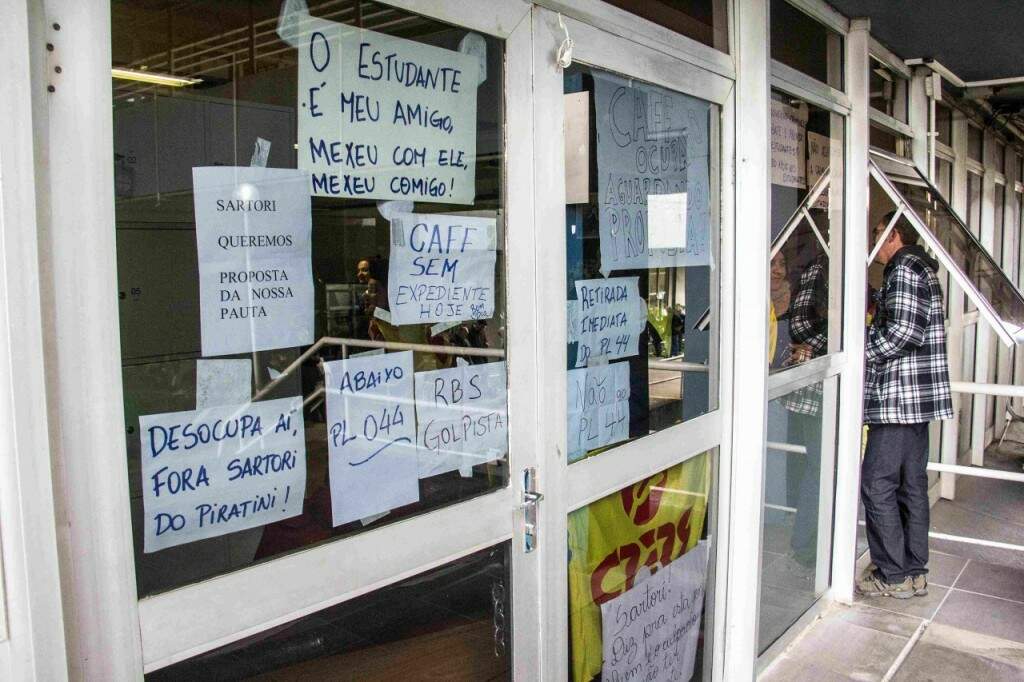 O ESTUDANTE
É MEU AMIGO,
MEXEU COM ELE,
MEXEU COMIGO!
SARTORI
QUEREMOS
PROPOSTA
DA NOSSA
PAUTA
CAFF
SEM
EXPEDIENTE
HOJE
DESOCUPA AÍ,
FORA SARTORI
DO PIRATINI!
ABAIXO
PL 044
RBS
GOLPISTA
CAFF
OCUPA
AGUARDANDO
RETIRADA
IMEDIATA
DO PL 44
NÃO ao
PL 44
CPERS
Sartori!
Diz pra esta